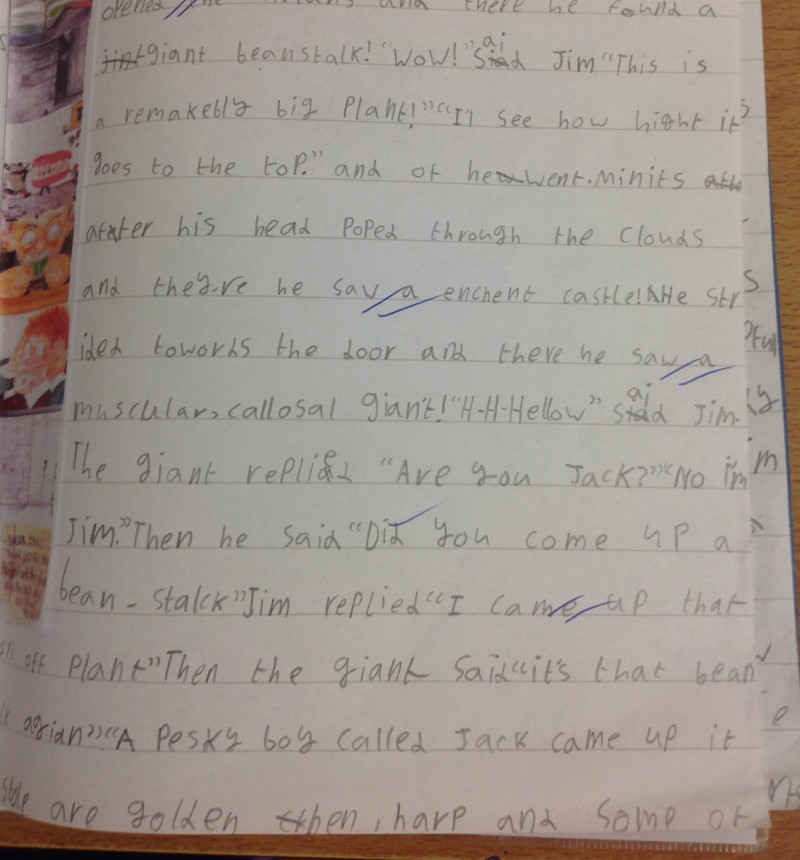 opened the and there he found a
giant beanstalk! "Wow!" Said Jim "This is
a remakebly big Plant!" "I'l see how hight it
goes to the top." and of he went. Minits
arter his head Poped through the clouds
and they're he sav a enchent castle! He str
ided toworhs the door and there he saw a
muscular, callosal giant! "H-H-Hellow" Said Jim.
The giant replied "Are you Jack?" "No i'm
Jim." Then he said "Did you come up a
bean-stalck" Jim replied "I came up that
off Plant" Then the giant Said "it's that bean
agrian" "A Pesky boy called Jack came up it
stole are golden hen, harp and some of